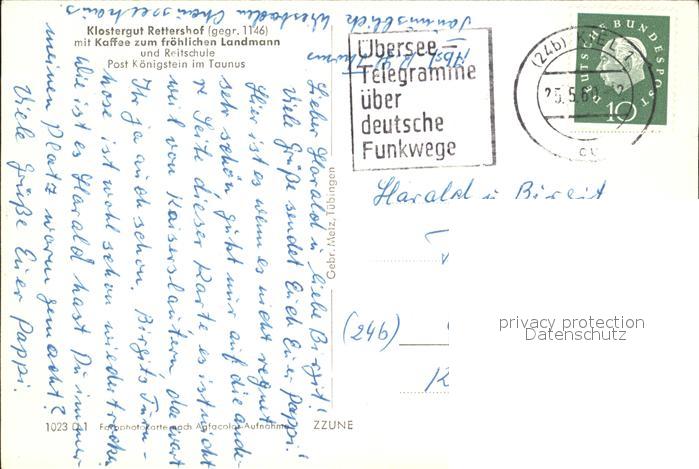 Klostergut Rettershof (gegr. 1146)
mit Kaffee zum fröhlichen Landmann
und Reitschule
Post Königstein im Taunus
Übersee-
Telegramme
über
deutsche
Funkwege
(24b) KIEL
25.5.60
DEUTSCHE BUNDESPOST
10
Lieber Harald u. liebe Birgit!
Viele Grüße sendet Euch Euer Pappi!
Hier ist es wenn es nicht regnet
sehr schön. Guckt mir auf die ande-
re Seite dieser Karte es ist nicht
weit von Kaiserslautern da wart
Ihr ja auch schon. Birgits Turn-
hose ist wohl schon wieder trocken
Wie ist es Harald hast Du immer
meinen Platz warm gemacht?
Viele Grüße Euer Pappi.
Gebr. Metz, Tübingen
Harald u Birgit
(24b)
privacy protection
Datenschutz
1023 D 1 Farbphotokarte nach Agfacolor-Aufnahme
ZZUNE